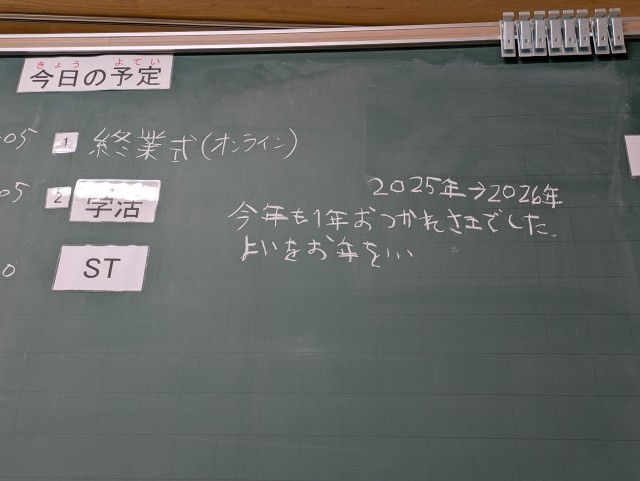 きょう よてい
今日の予定
05 1 終業式(オンライン)
05 2 学活
0 ST
2025年→2026年
今年も1年おつかれさまでした.
よいをお年を...